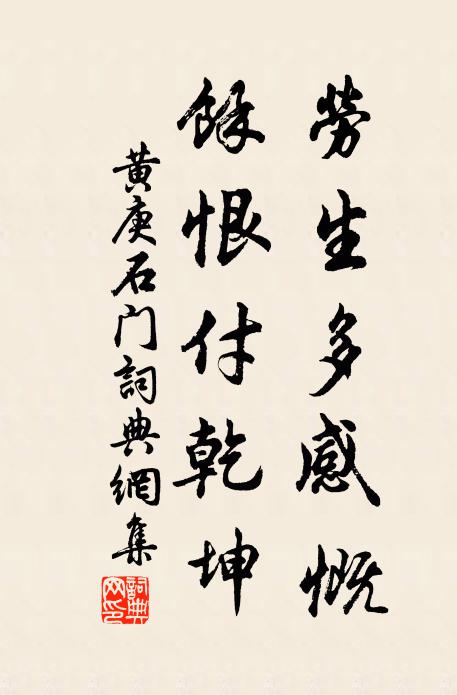 勞生多感慨
餘恨付乾坤
黄庚石门詞典網集
詞典網印